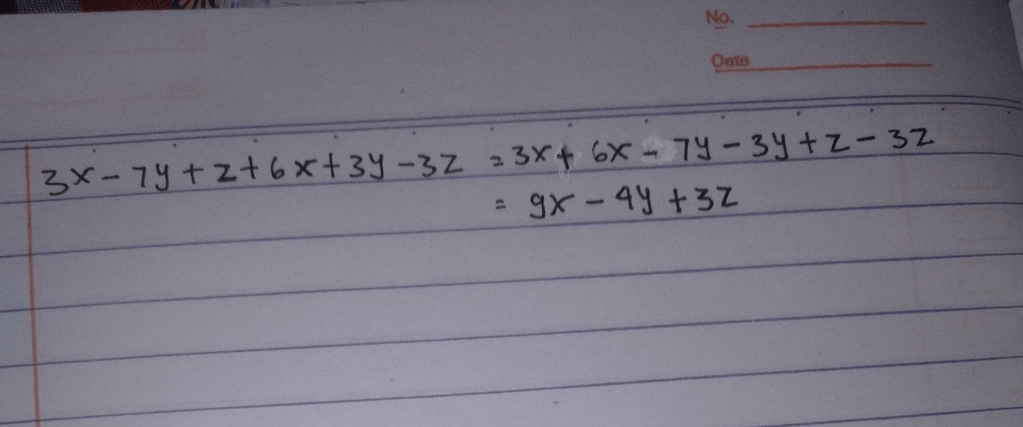 No.
Date
3x - 7y + z + 6x + 3y - 3z = 3x + 6x - 7y - 3y + z - 3z
= 9x - 4y + 3z